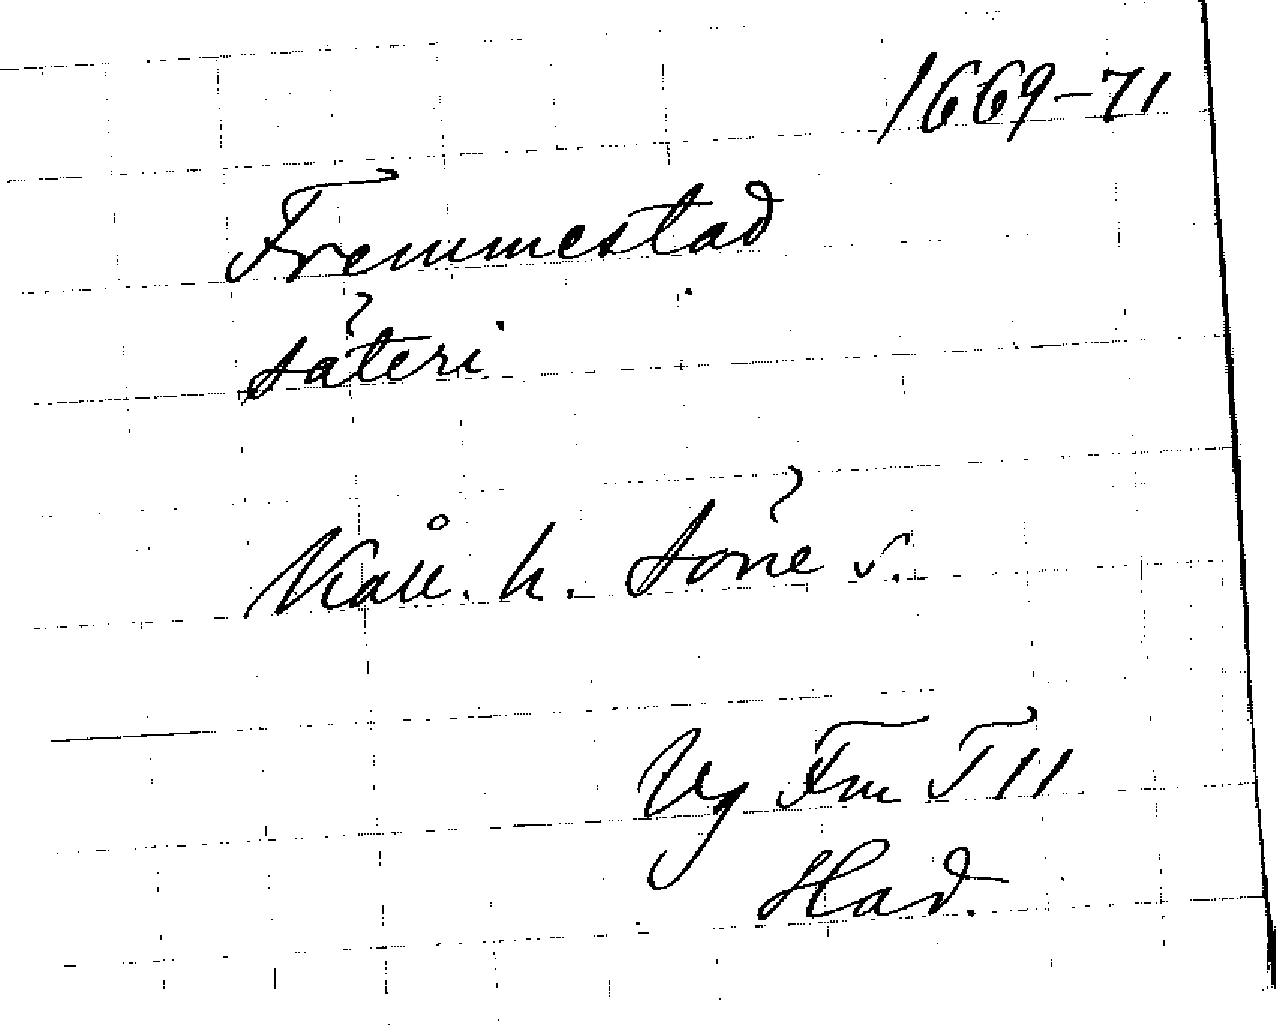 1669-71
Fremmestad
säteri
Kåll. h. Töne s.
Vg Fm T 11
Had.